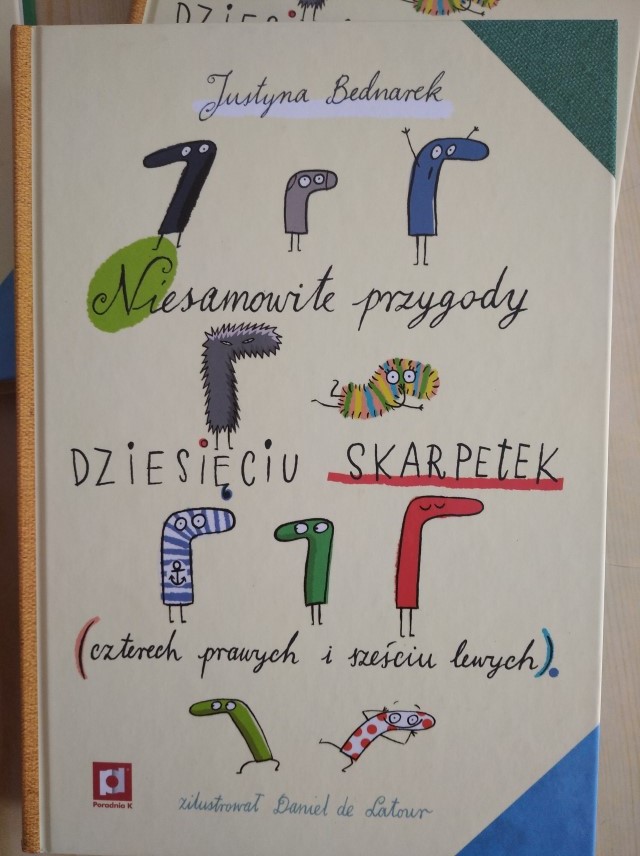 DZIESI
Justyna Bednarek
Niesamowite przygody
DZIESIĘCIU SKARPETEK
(czterech prawych i sześciu lewych).
Poradnia K
zilustrował Daniel de Latour